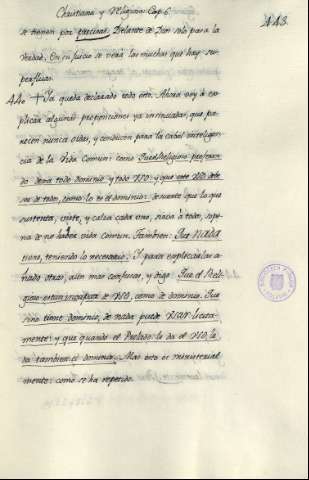 Christiana y Religiosa Cap. 6.
113.
se tienen por precisas. Delante de Dios solo pasa la
verdad. En su juicio se verá las muchas que hay su-
perfluas.
440 + Ya queda declarado todo esto. Ahora voy á ex-
plicar algunas proposiciones ya insinuadas, que pa-
recen nunca oidas, y conducen para la cabal inteligen-
cia de la Vida Comun: como
do de todo dominio, y todo uso: y que este uso debe
ser de todos, como lo es el dominio: de suerte que lo que
sustenta, viste, y calza cada uno, sirva á todos, so pe-
na de no haber vida comun. Tambien: Que nada
tiene, teniendo lo necesario. Y para explicarlas a-
ñado otras, aun mas confusas, y digo: Que el Reli-
gioso es tan incapaz de uso, como de dominio. Que
sino tiene dominio, de nada puede usar licita-
mente: y que quando el Prelado le da el uso, le
da tambien el dominio. Mas esto es ministerial
mente: como se ha repetido.